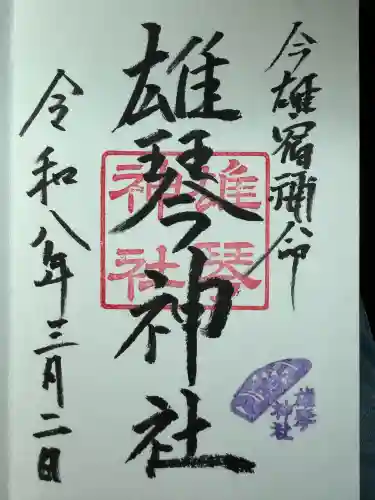 今雄宿禰命
雄琴神社
令和八年三月二日
雄琴
神社
雄琴
神社